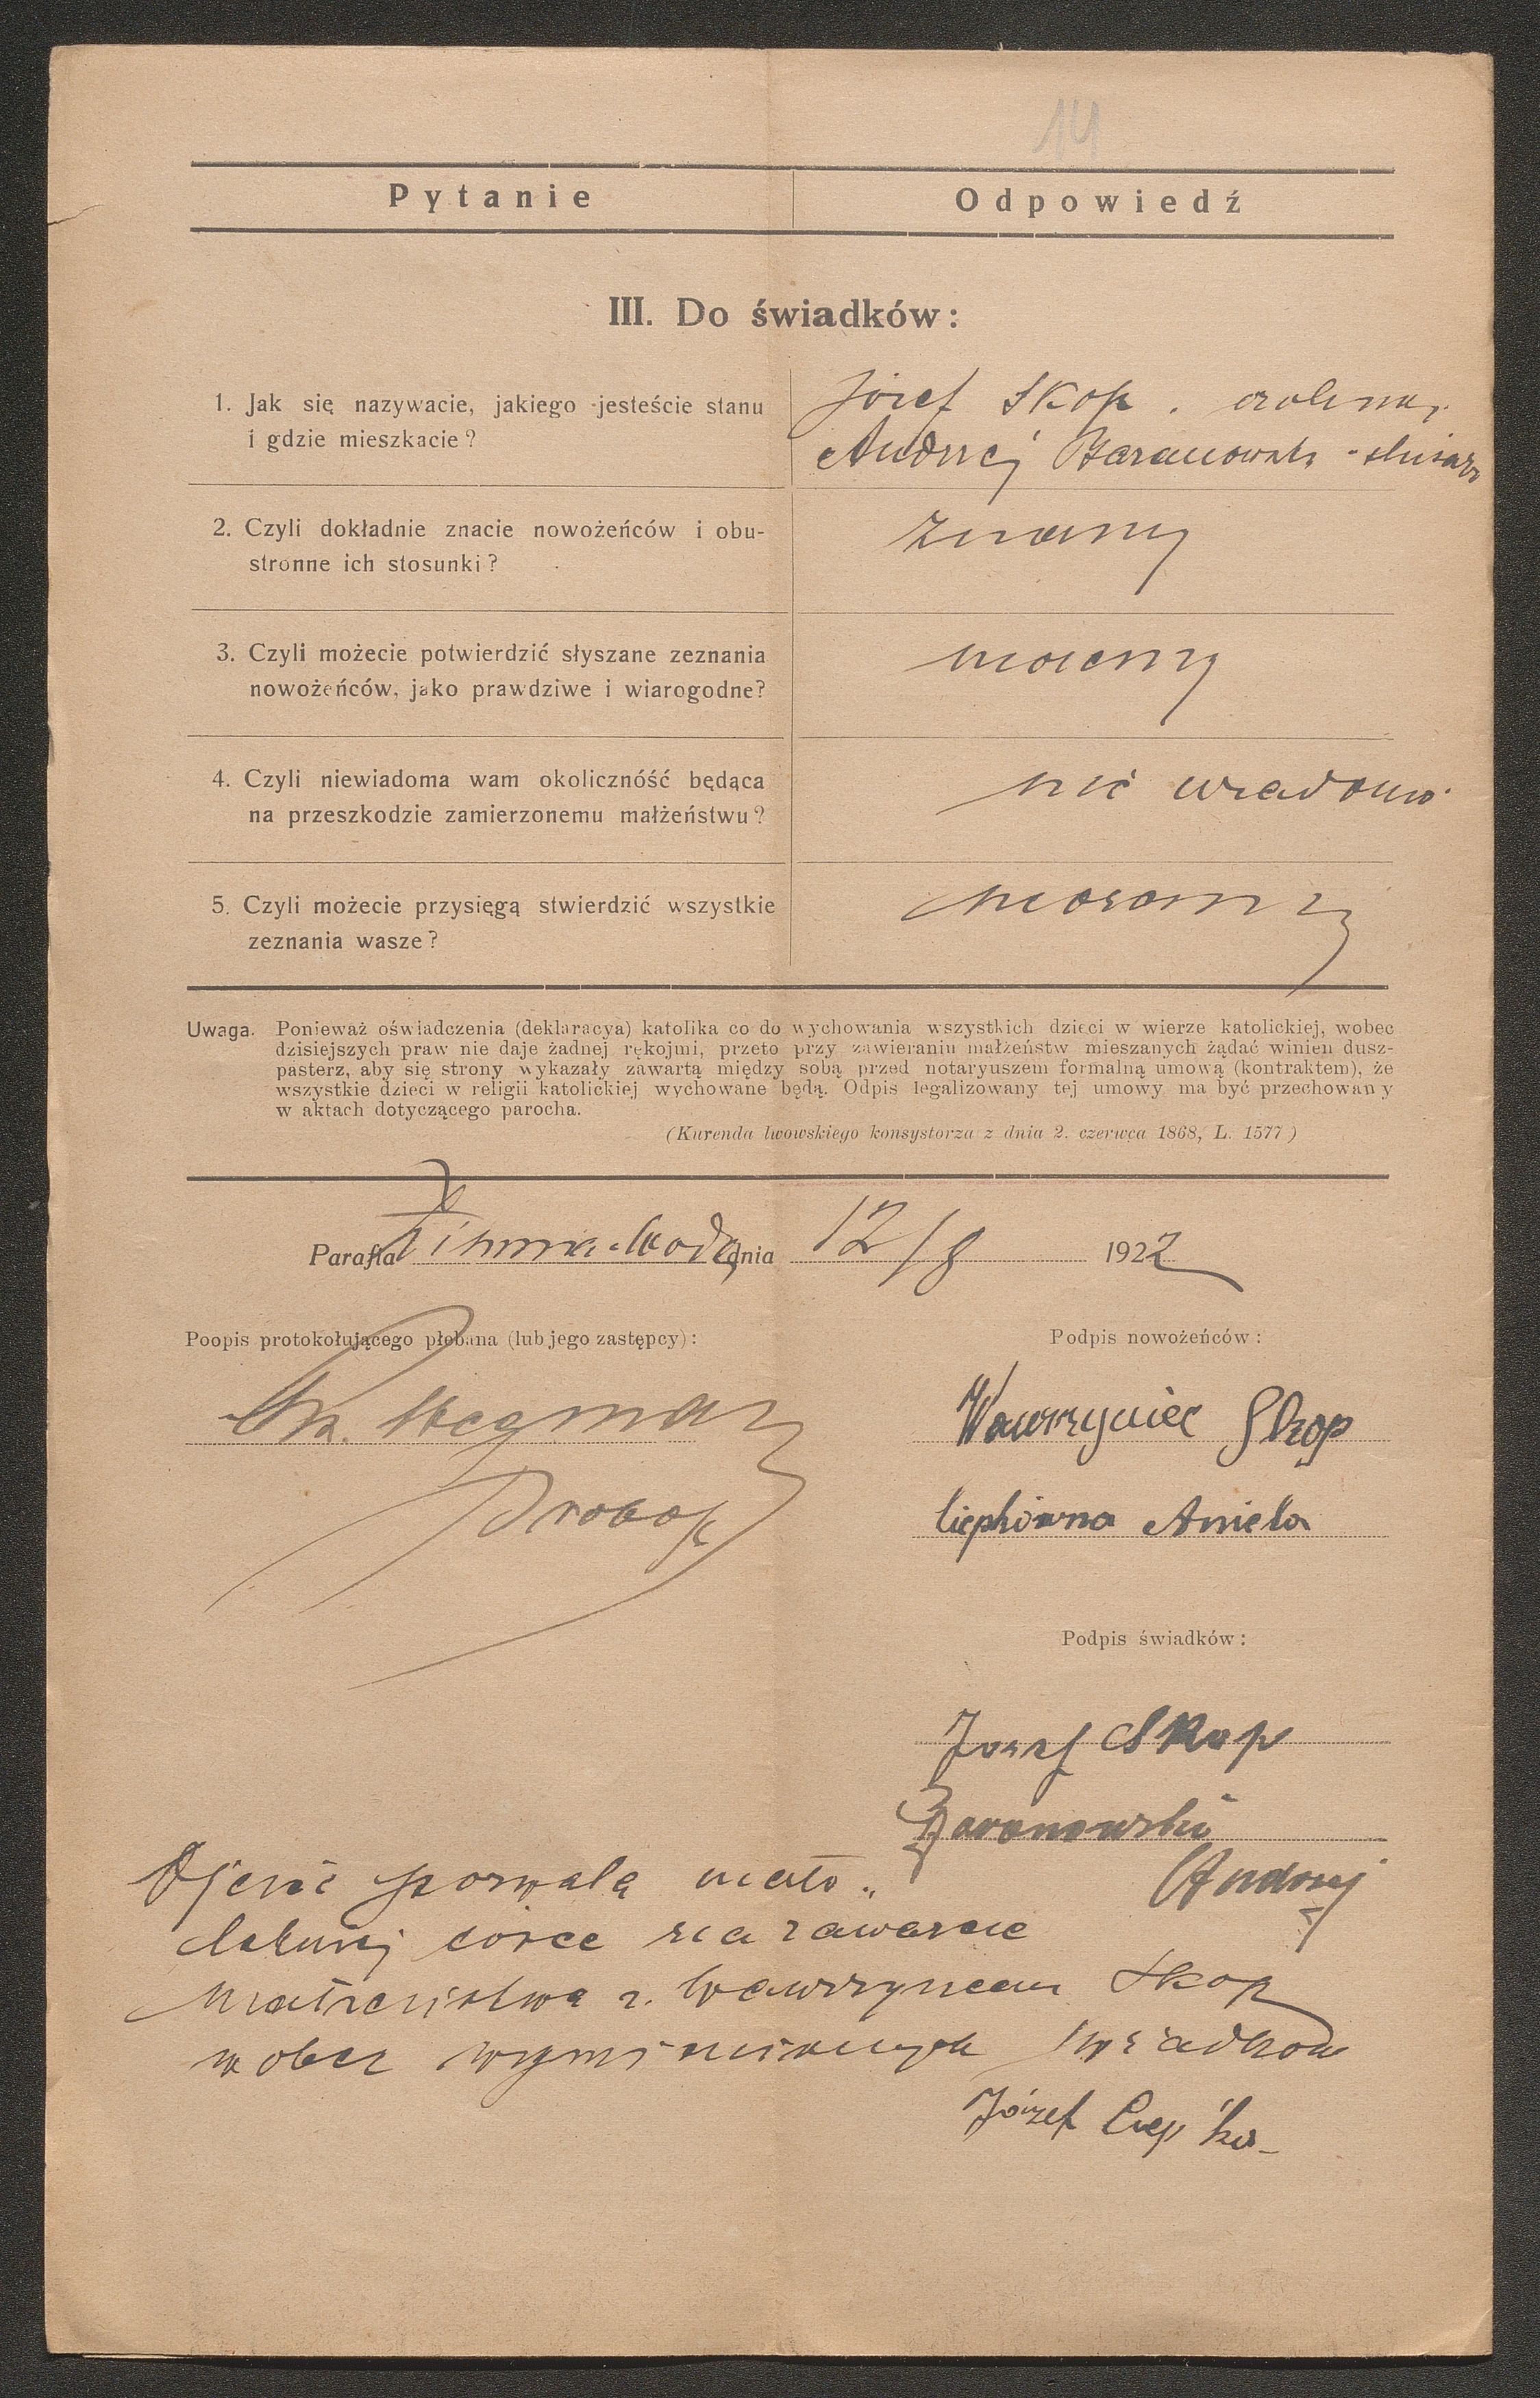 14
Pytanie Odpowiedź
III. Do świadków:
1. Jak się nazywacie, jakiego jesteście stanu
i gdzie mieszkacie?
Józef Skop. rolnik,
Andrzej Baranowski - ślusarz
2. Czyli dokładnie znacie nowożeńców i obu-
stronne ich stosunki?
znamy
3. Czyli możecie potwierdzić słyszane zeznania
nowożeńców, jako prawdziwe i wiarogodne?
możemy
4. Czyli niewiadoma wam okoliczńóść będąca
na przeszkodzie zamierzonemu małżeństwu?
nic wiadomo
5. Czyli możecie przysięgą stwierdzić wszystkie
zeznania wasze?
możemy
Uwaga. Ponieważ oświadczenia (deklaracya) katolika co do wychowania wszystkich dzieci w wierze katolickiej, wobec
dzisiejszych praw nie daje żadnej rękojmi, przeto przy zawieraniu małżeństw mieszanych żądać winien dusz-
pasterz, aby się strony wykazały zawartą między sobą przed notaryuszem formalną umową (kontraktem), że
wszystkie dzieci w religii katolickiej wychowane będą. Odpis legalizowany tej umowy ma być przechowany
w aktach dotyczącego parocha.
(Kurenda lwowskiego konsystorza z dnia 2. czerwca 1868, L. 1577)
Parafia Zimna-Woda dnia 12/8 1922
Poopis protokołującego plebana (lub jego zastępcy):
Podpis nowożeńców:
Wawrzyniec Skop
Ciepkówna Aniela
Podpis świadków:
Józef Skop
Baranowski
Andrzej
Ojciec pozwala mało-
letniej córce na zawarcie
małżeństwa z Wawrzyncem Skop
wobec wymienionych świadków
Józef Ciepko